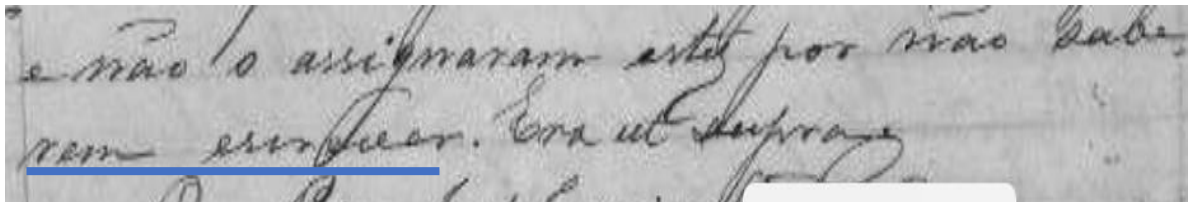 e não o assignaram estes por não sabe-
rem escrever. Era ut supra